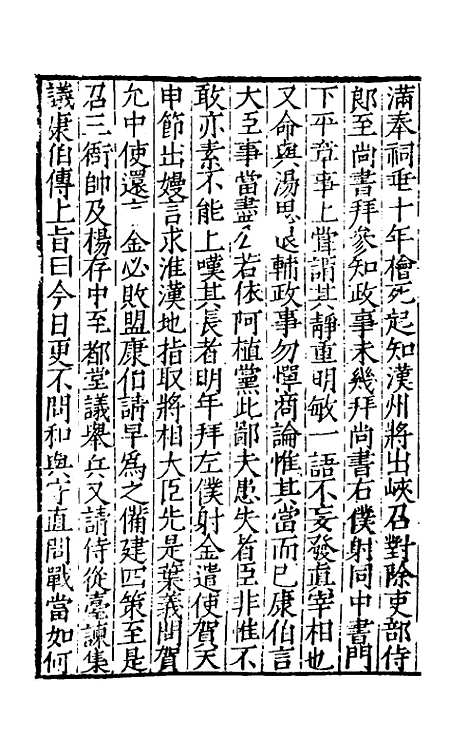 滿奉祠垂十年檜死起知漢州將出峽召對除吏部侍
郎至尚書拜參知政事未幾拜尚書右僕射同中書門
下平章事上嘗謂其靜重明敏一語不妄發直宰相也
又命與湯思退輔政事勿憚商論惟其當而已康伯言
大臣事當盡公若依阿植黨此鄙夫患失者臣非惟不
敢亦素不能上嘆其長者明年拜左僕射金遣使賀天
申節出嫚言求淮漢地指取將相大臣先是葉義問賀
允中使還言金必敗盟康伯請早為之備建四策至是
召三衙帥及楊存中至都堂議舉兵又請侍從臺諫集
議康伯傳上旨曰今日更不問和與守直問戰當如何